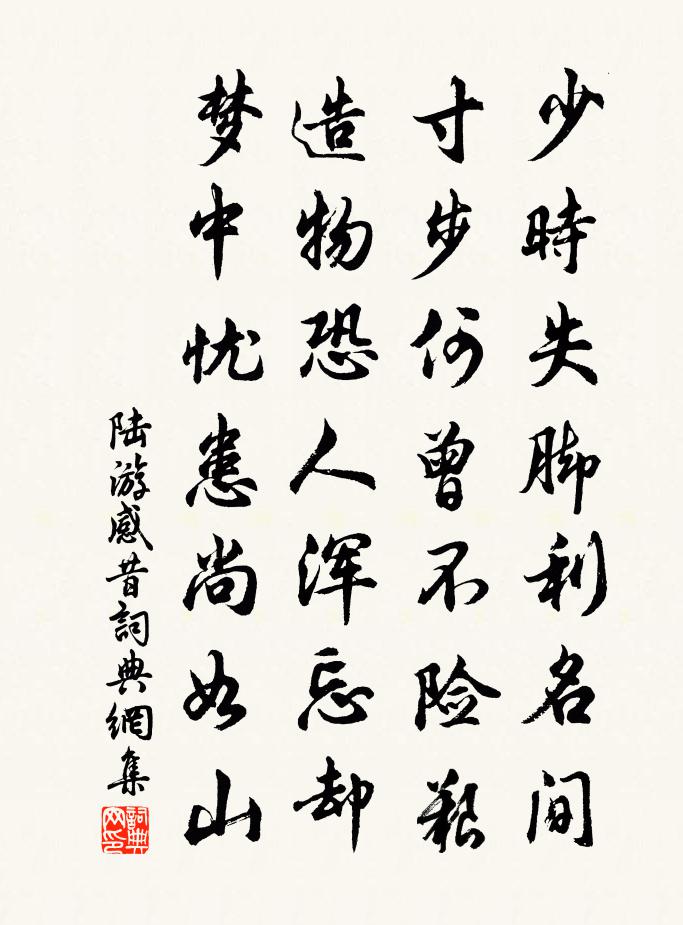 少時失脚利名间
寸步何曾不险艱
造物恐人浑忘却
梦中忧患尚如山
陆游感昔詞典網集
詞典网印